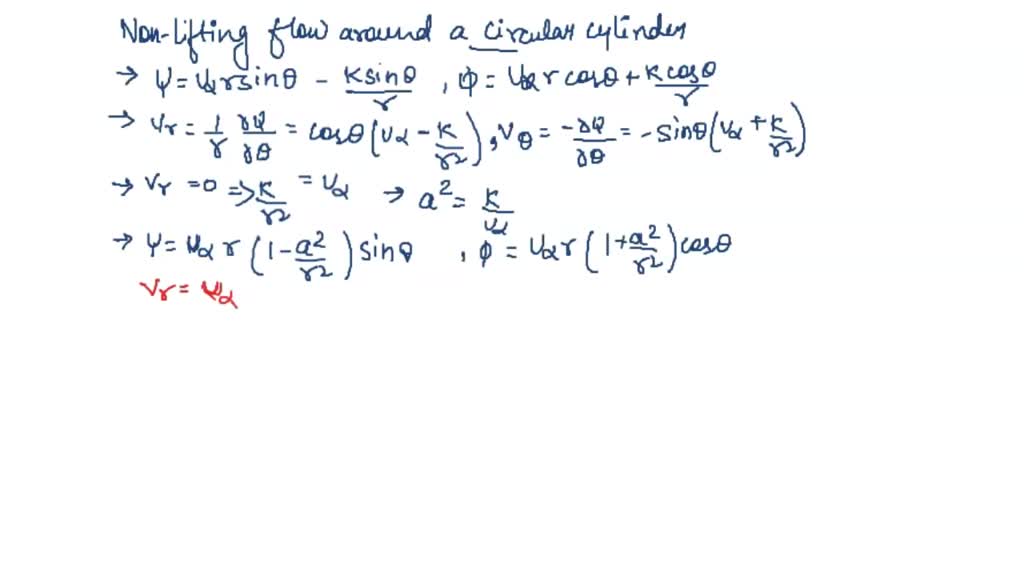 Non-Lifting flow around a circular cylinder
→ Ψ = Uα r sinθ - K sinθ / r , φ = Uα r cosθ + K cosθ / r
→ Vr = 1/r ∂Ψ/∂θ = cosθ (Uα - K/r²), Vθ = -∂Ψ/∂θ = -sinθ (Uα + K/r²)
→ Vr = 0 => K/r² = Uα → a² = K/Uα
→ Ψ = Uα r (1 - a²/r²) sinθ , φ = Uα r (1 + a²/r²) cosθ
Vr = Uα